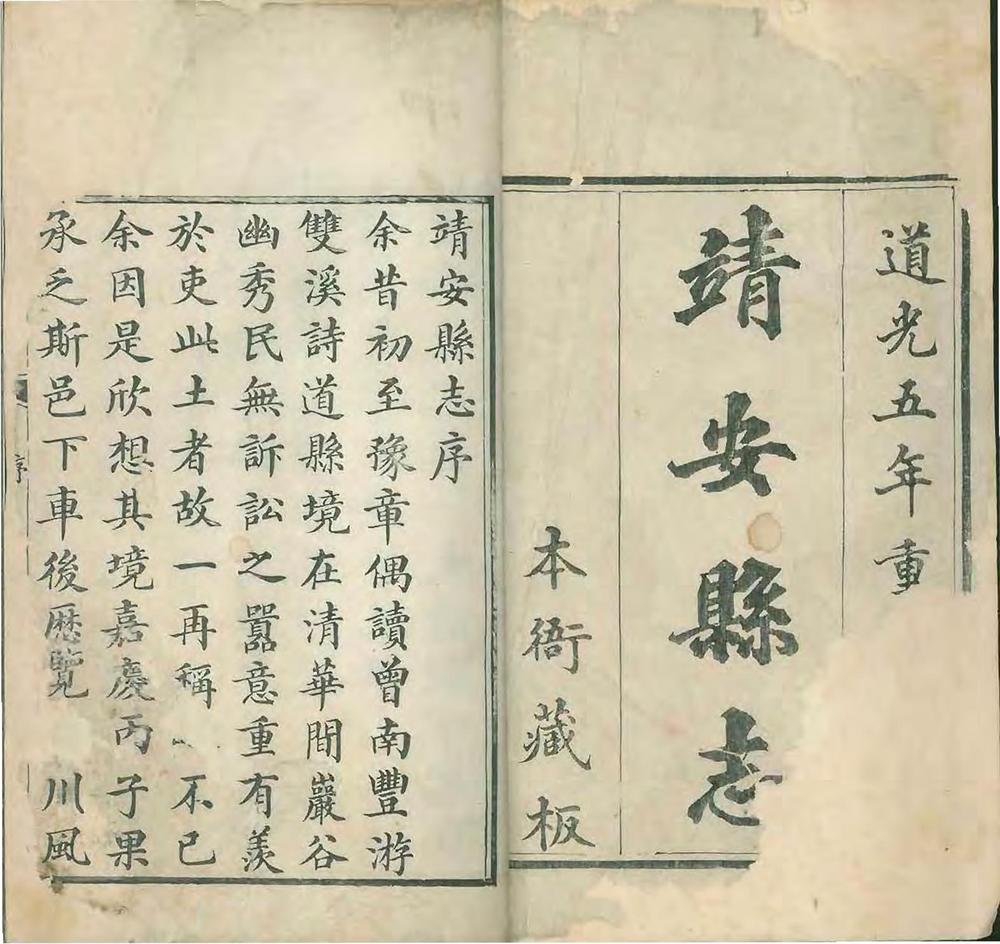 道光五年重
靖安縣志
本衙藏板
靖安縣志序
余昔初至豫章偶讀曾南豐游
雙溪詩道縣境在清華間巖谷
幽秀民無訴訟之嚣意重有羨
於吏此土者故一再稱不已
余因是欣想其境嘉慶丙子果
承乏斯邑下車後歷覽川風
序